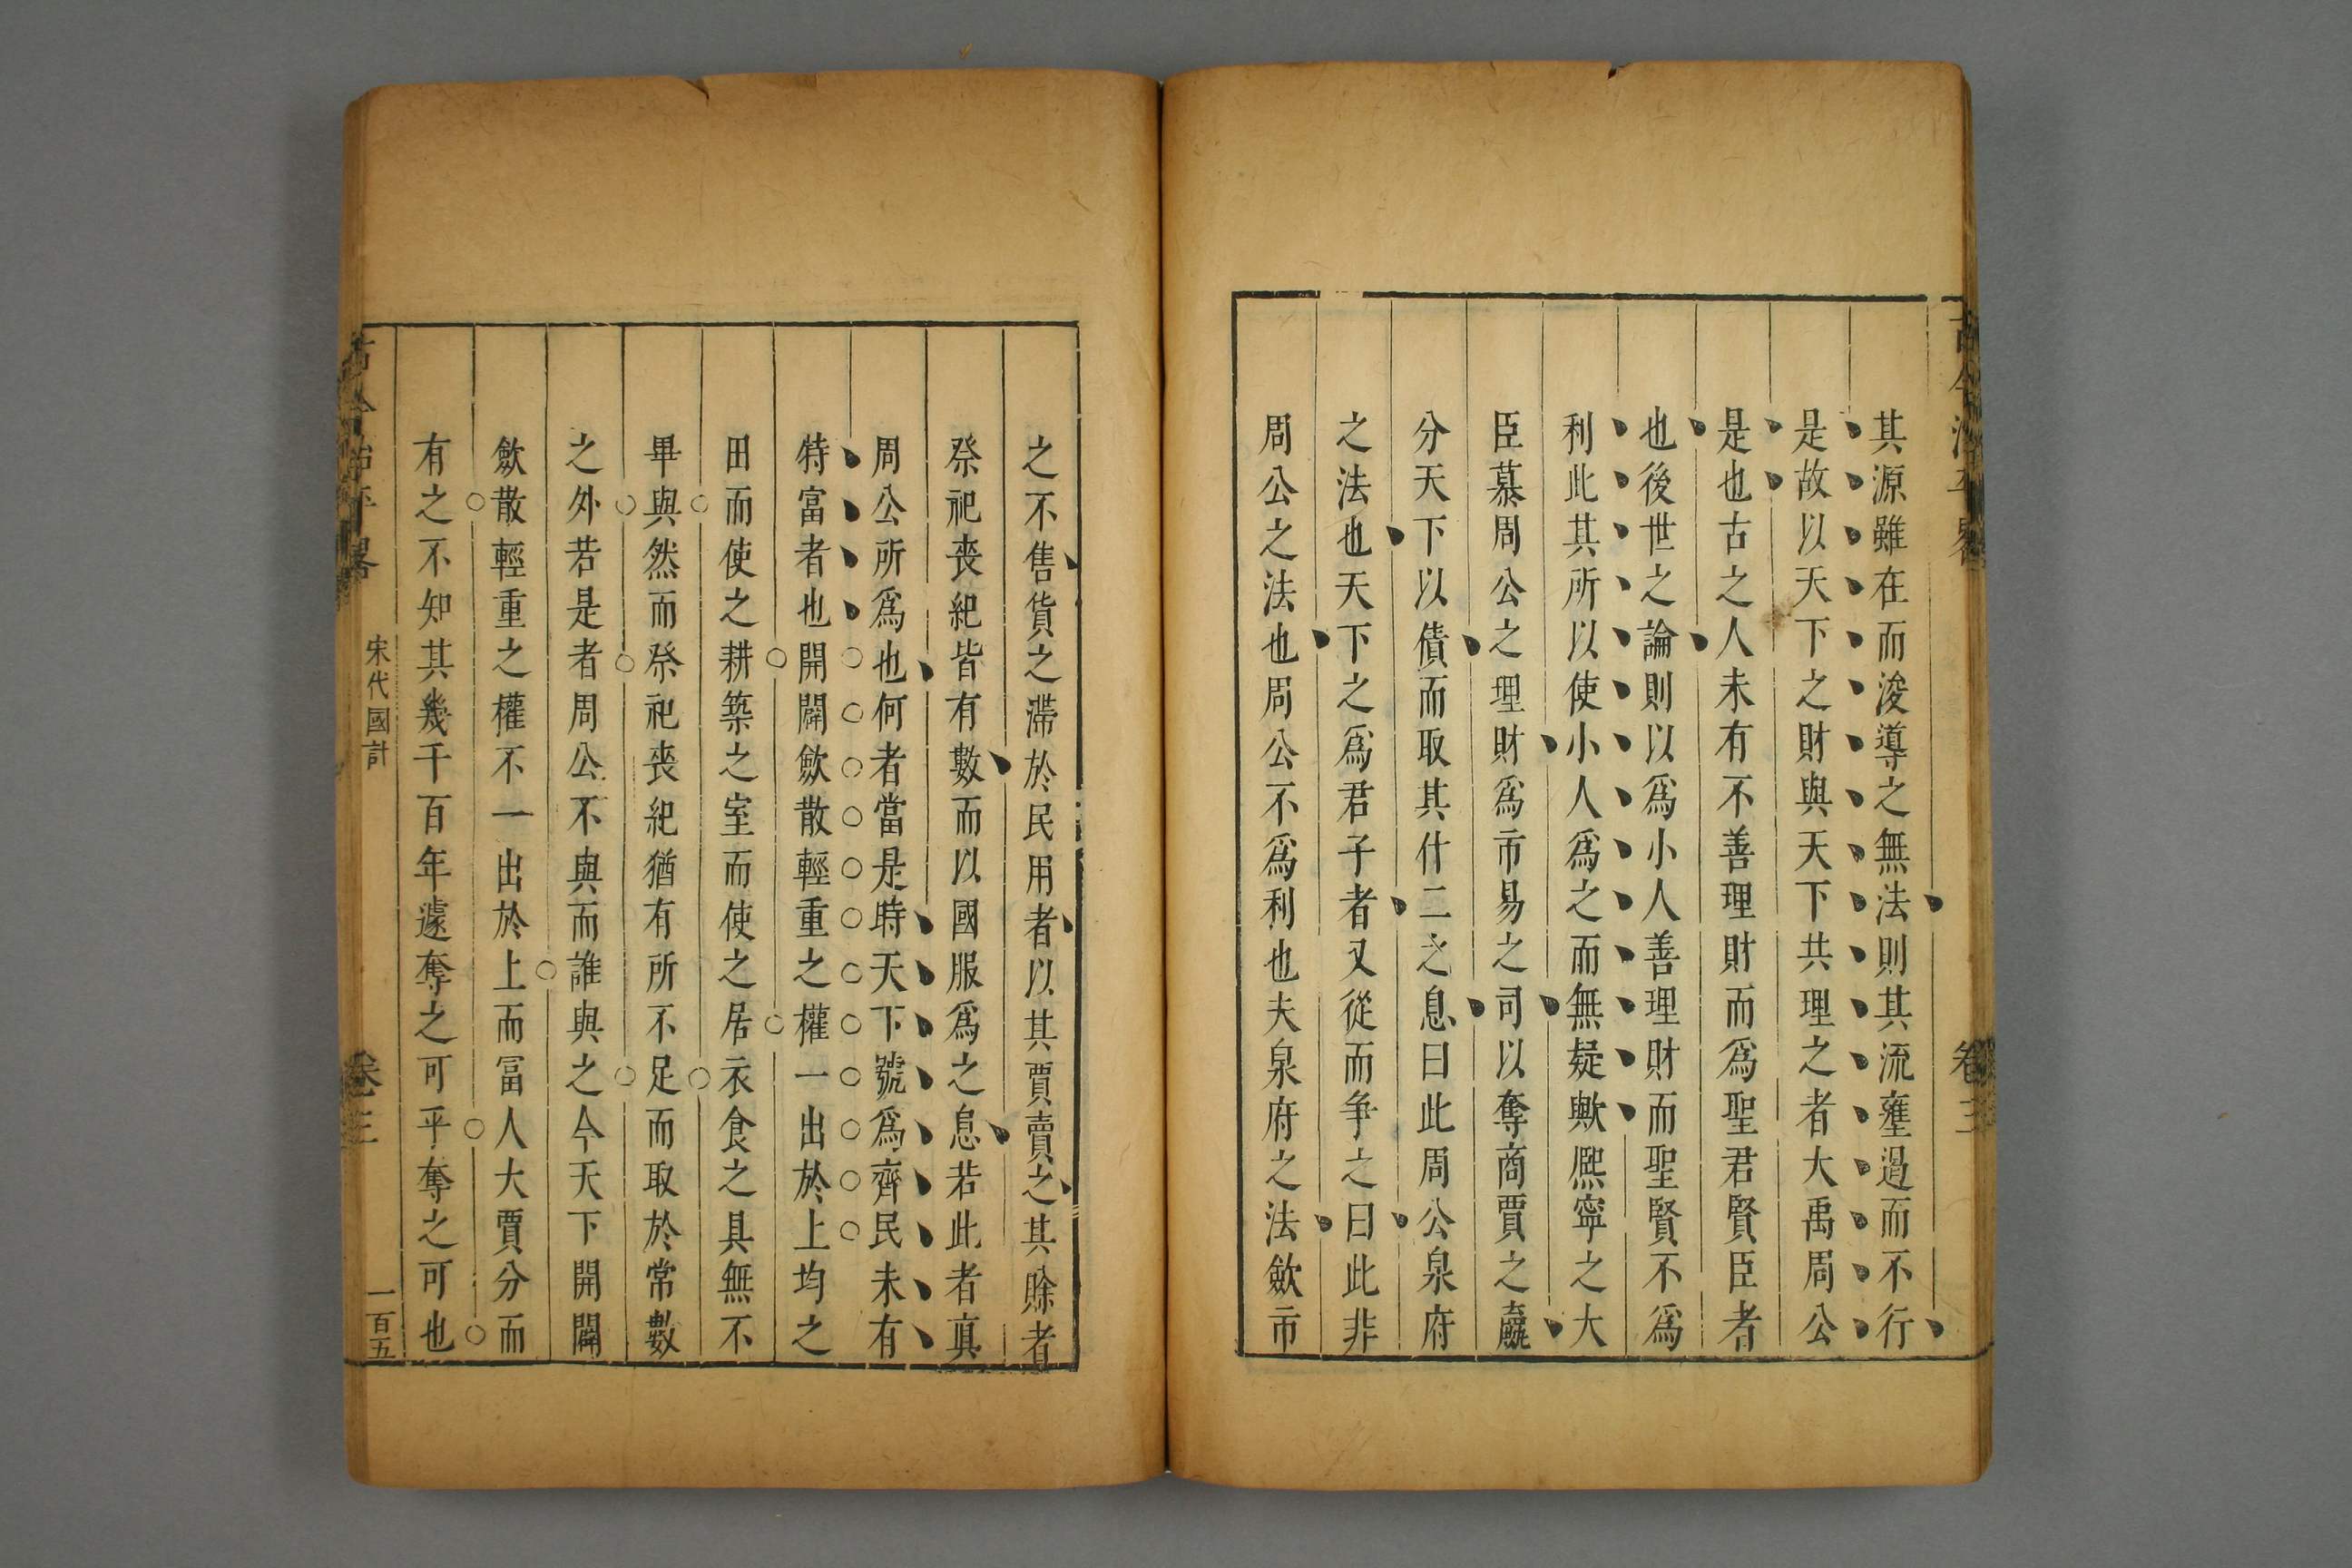 其源雖在而浚導之無法則其流壅遏而不行
是故以天下之財與天下共理之者大禹周公
是也古之人未有不善理財而爲聖君賢臣者
也後世之論則以爲小人善理財而聖賢不爲
利此其所以使小人爲之而無疑歟熈寧之大
臣慕周公之理財爲市易之司以奪商賈之贏
分天下以債而取其什二之息曰此周公泉府
之法也天下之爲君子者又從而争之曰此非
周公之法也周公不爲利也夫泉府之法斂市
之不售貨之滯於民用者以其賈賣之其賖者
祭祀喪紀皆有數而以國服爲之息若此者真
周公所爲也何者當是時天下號爲齊民未有
特富者也開闔斂散輕重之權一出於上均之
田而使之耕築之室而使之居衣食之具無不
畢與然而祭祀喪紀猶有所不足而取於常數
之外若是者周公不與而誰與之今天下開闔
斂散輕重之權不一出於上而冨人大賈分而
有之不知其幾千百年遽奪之可乎奪之可也
古今治平畧
宋代國計
卷三
一百五